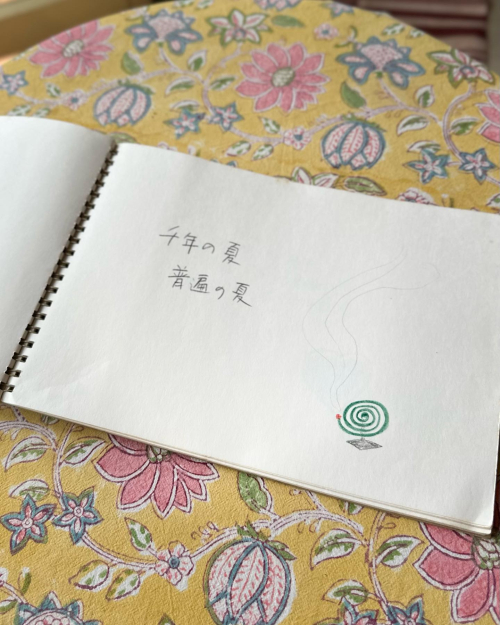 千年の夏
普遍の夏